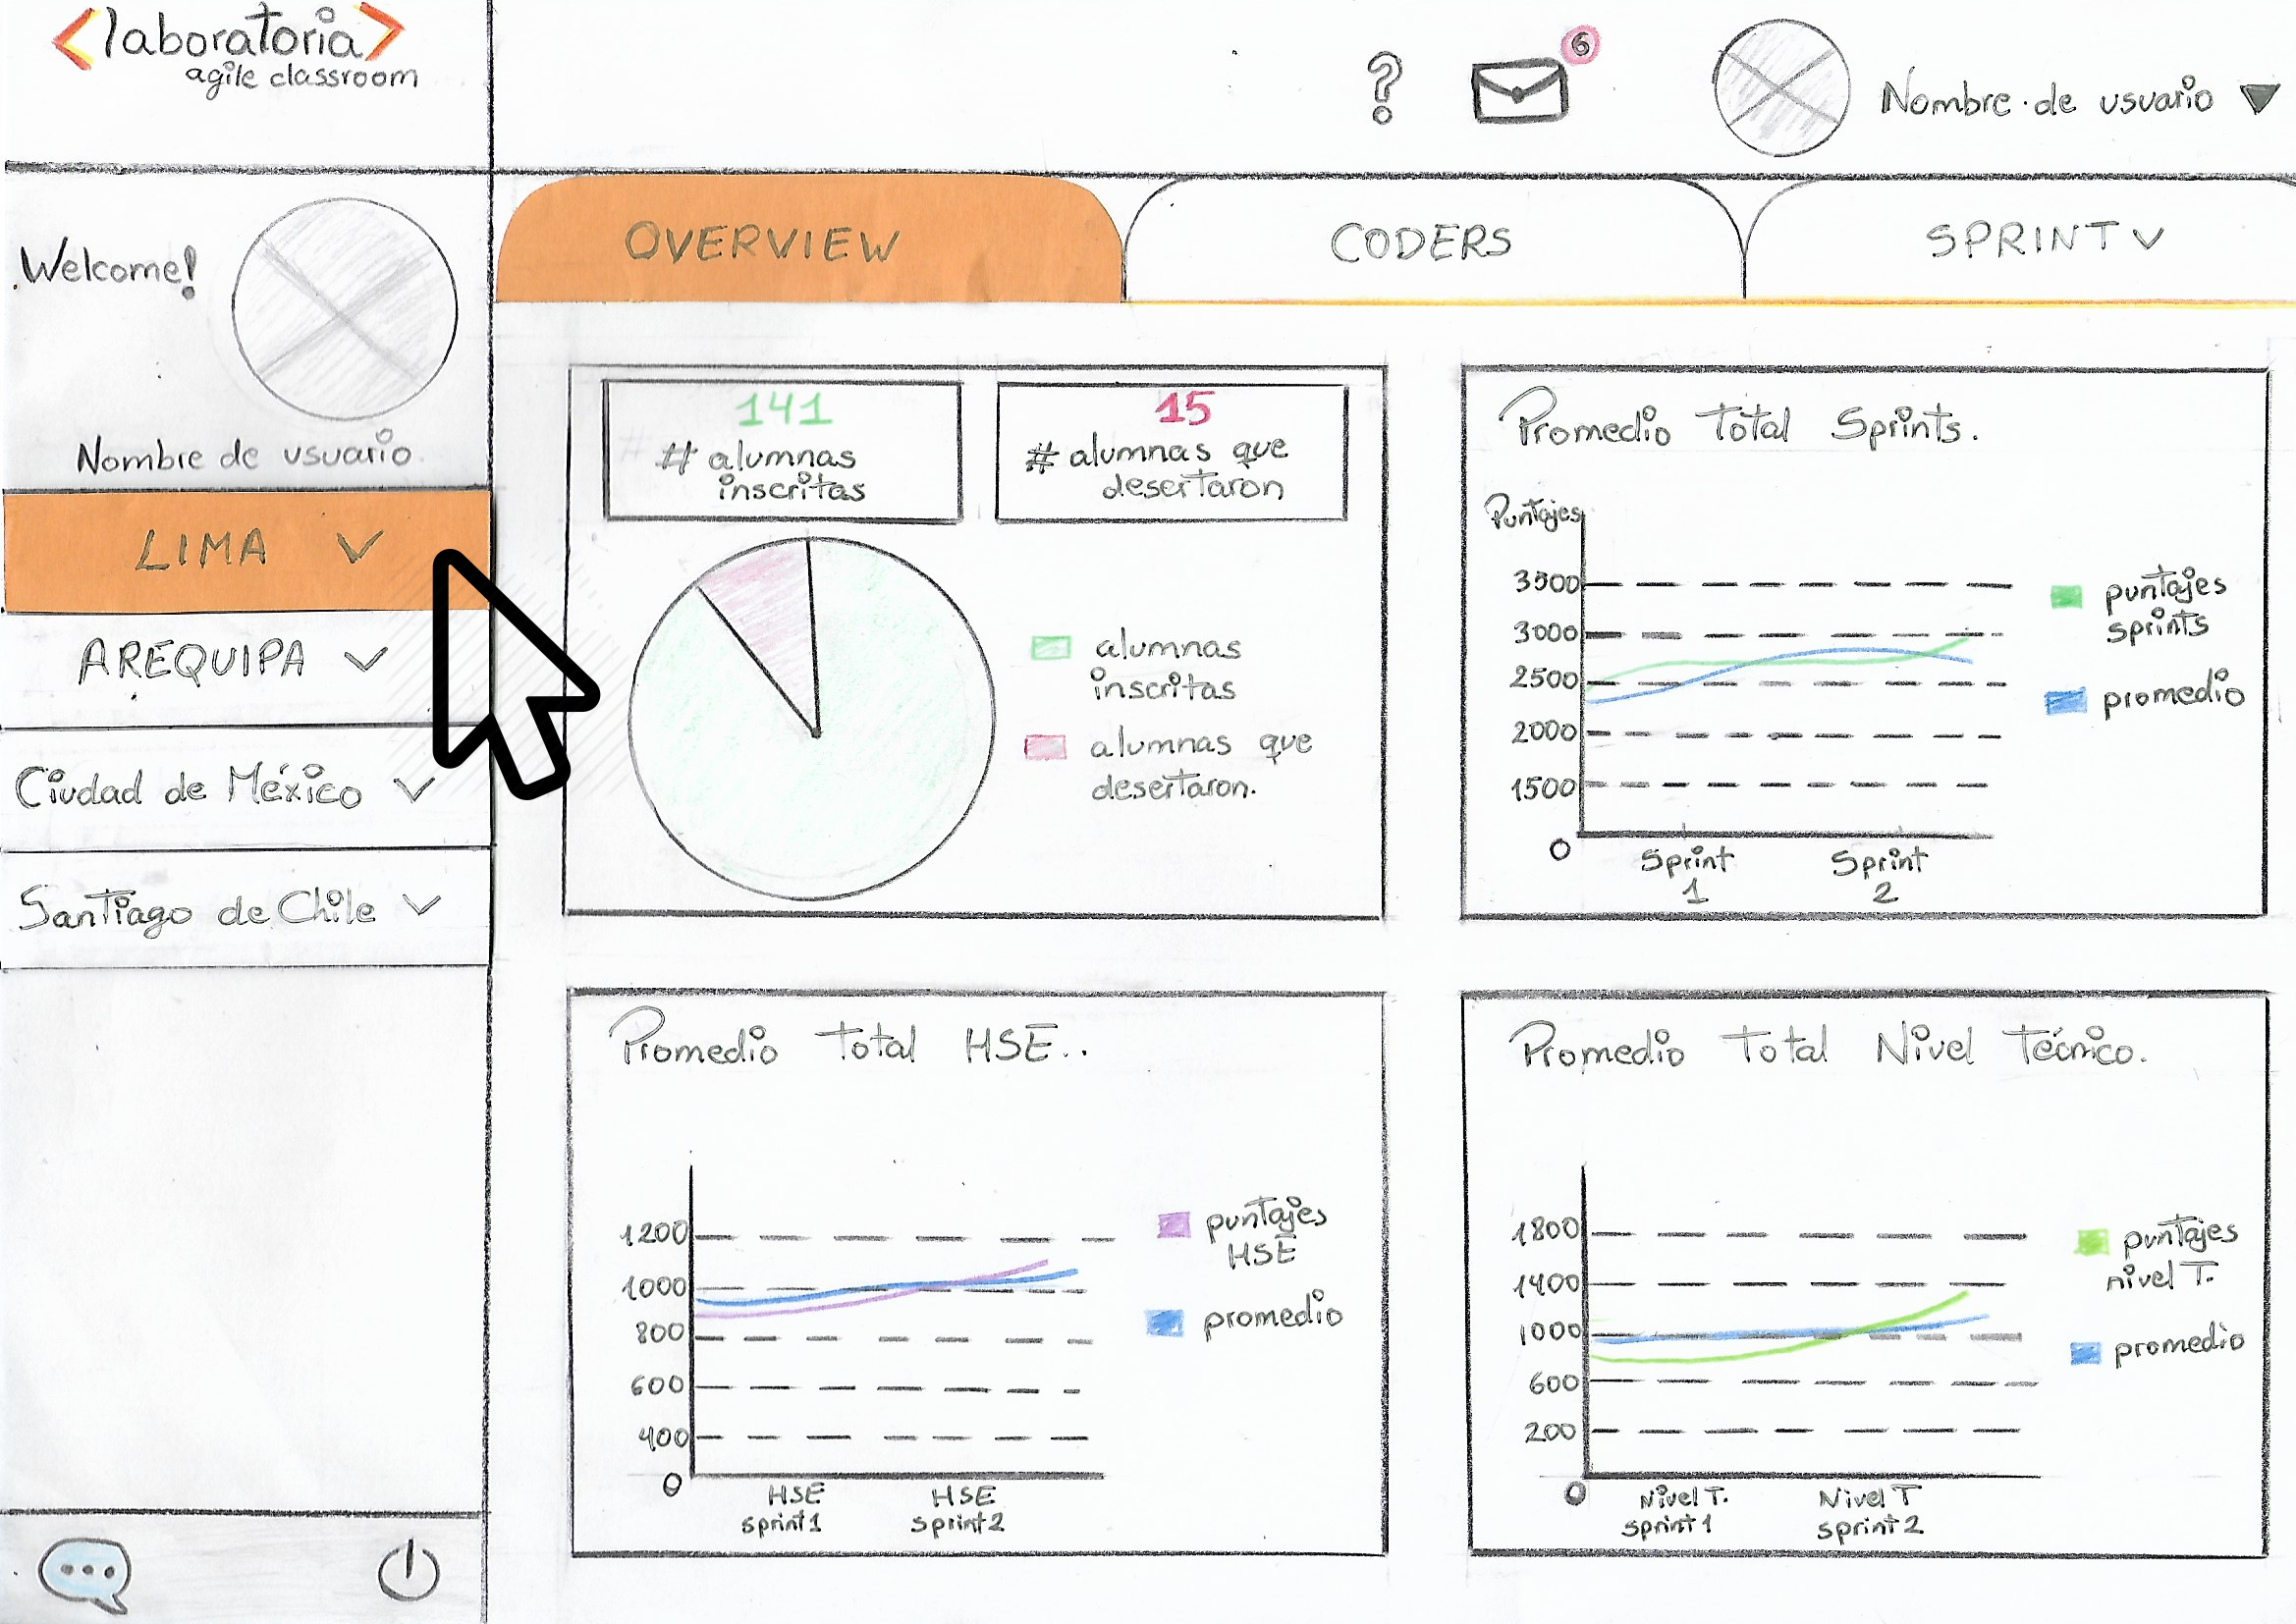 <laboratoria>
agile classroom
?
6
Nombre de usuario
Welcome!
Nombre de usuario
LIMA
AREQUIPA
Ciudad de México
Santiago de Chile
OVERVIEW
CODERS
SPRINT
141
# alumnas
inscritas
15
# alumnas que
desertaron
alumnas
inscritas
alumnas que
desertaron.
Promedio Total Sprints.
Puntajes
3500
3000
2500
2000
1500
0
Sprint
1
Sprint
2
puntajes
sprints
promedio
Promedio Total HSE..
1200
1000
800
600
400
0
HSE
sprint1
HSE
sprint2
puntajes
HSE
promedio
Promedio Total Nivel Técnico.
1800
1400
1000
600
200
0
Nivel T.
sprint1
Nivel T
sprint2
puntajes
nivel T.
promedio